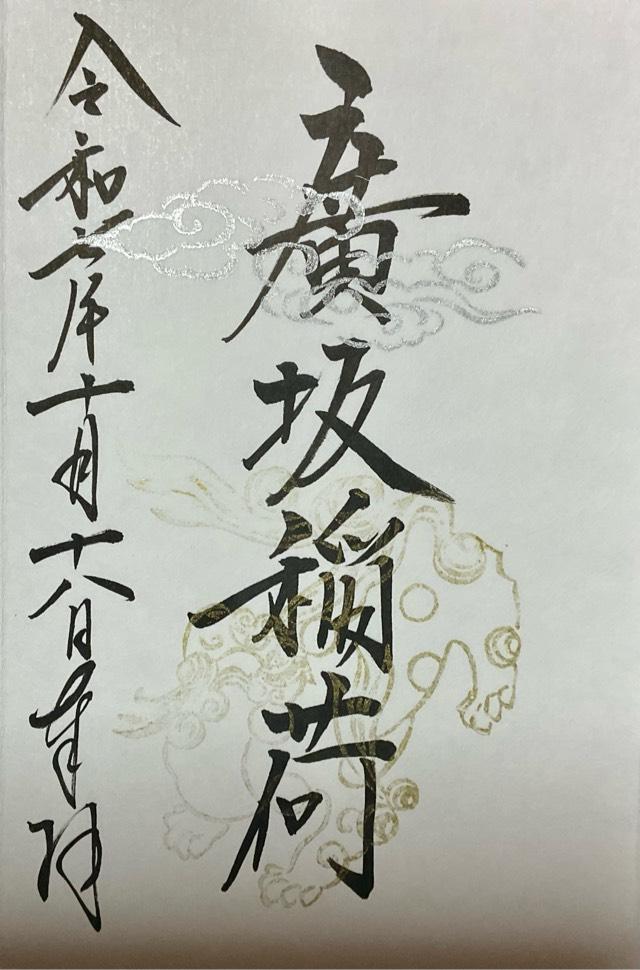 廣坂稲荷
令和年十月十八日奉拝